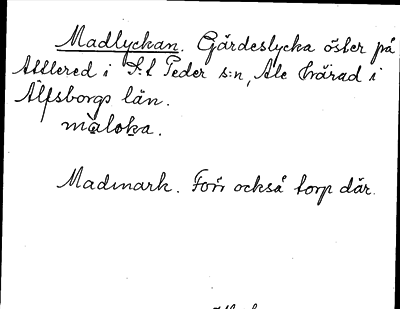 Madlyckan. Gärdeslycka öster på
Alllered i S:t Peder s:n, Ale härad i
Älfsborgs län.
màloka.
Madmark. Förr också torp där.